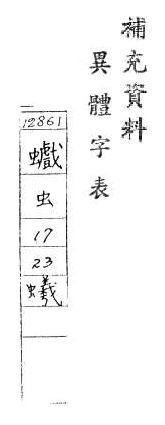 補充資料
異體字表
12861
虫
17
23
蟻